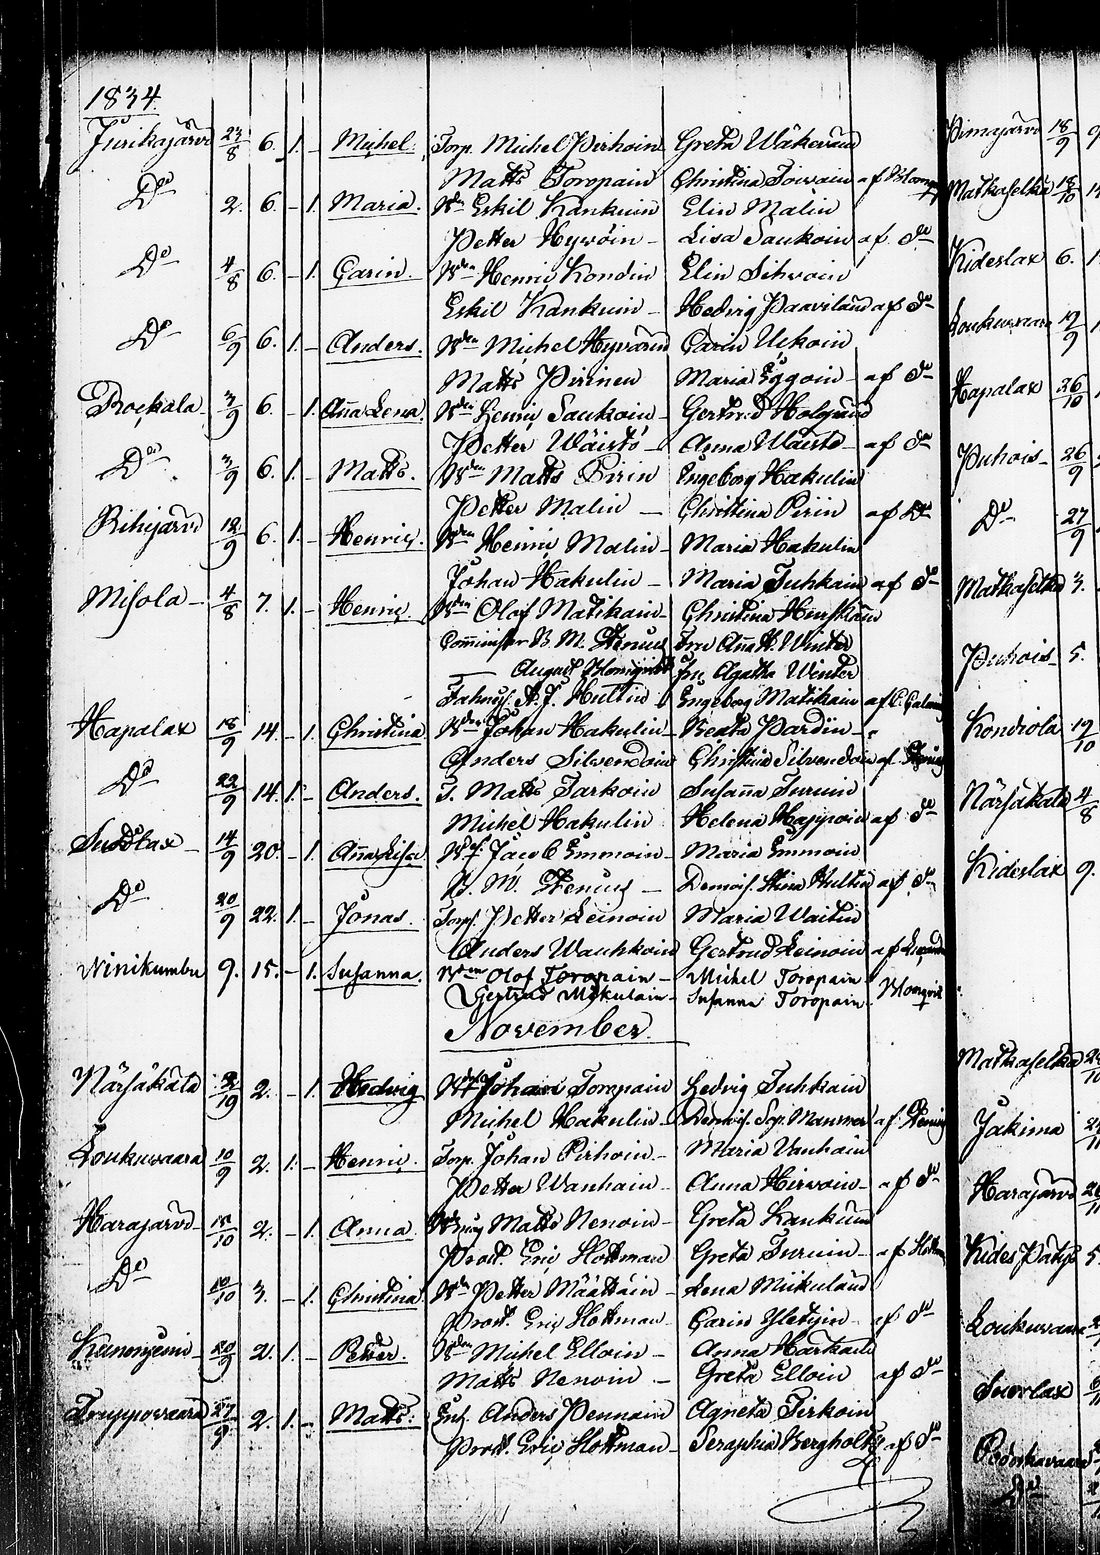 1834.
Jurikajärvi 23/8 6. 1. – Michel. Torp. Michel Pirhoin Greta Wäkeväin
Matts Toropain Christina Toivain af Blomq
Do 2. 6. – 1. Maria. Bden Eskil Kankuin Elin Malin
Petter Hyvöin – Lisa Saukoin af do
Do 4/8 6. – 1. Carin. Bden Henric Kondin Elin Silvoin
Eskil Kankuin – Hedvig Paavilain af do
Do 6/9 6. 1. – Anders. Bden Michel Hyvärin Carin Uckoin
Matts Pirinen Maria Eggoin – af do
Rockala 3/9 6. – 1. Anna Lena. Bden Henric Saukoin – Gertrud Holopain
Petter Wäistö – Anna Wäistö – af do
Do 3/9 6. 1. – Matts. Bden Matts Pirin Ingeborg Hakulin
Petter Malin – Christina Pirin af do
Riihijärvi 12/9 6. 1. – Henric. Bden Henric Malin – Maria Hakulin
Johan Hakulin – Maria Tuhkain af do
Misola – 4/8 7. 1. – Henric Bden Olof Matikain – Christina Henskäin
Comminister B. M. Stenius Fru Anna H. Winter
August Blomqvist Fru Agatha Winter
A. J. Hultin – Ingeborg Matikain af C.
Hapalax 18/9 14. – 1. Christina Bden Johan Hakulin – Beata Pardin –
Anders Silvendoin Christina Silvendoin af Stenius
Do 22/9 14. 1. – Anders. T. Matts Tarkoin Susanna Turuin
Michel Hakulin Helena Happoin af do
Suorlax – 14/9 20. – 1. Anna Lisa Jacob Immoin – Maria Immoin
B. M. Stenius – Demois. Stina Hultin af do
Do 20/9 22. 1. – Jonas. Torp. Petter Leinoin Maria Waitin
Anders Wauhkoin Gertrud Leinoin af
Niinikumbu 9. 15. – 1. Susanna. Bden Olof Toropain – Michel Toropain
Gertrud Mikulain – Susanna Toropain. Blomqvist
November.
Närsäkälä 19 2. – 1. Hedvig Johan Toropain Hedvig Tuhkain
Michel Hakulin – Demois. Sop. af
Loukuvaara 10/9 2. 1. – Henric. Torp. Johan Pirhoin – Maria Vanhain
Petter Wanhain Anna Hirvoin – af do
Harajärvi – 15/10 2. – 1. Anna Matts Nenoin – Greta Kankuin
Prost. Eric Hottman Greta Turuin – af Hottman
Do 10/10 3. – 1. Christina Bden Petter Määttäin – Lena Miikulain
Prost. Eric Hottman Carin af do
Kunonniemi – 20/9 2. 1. – Petter. Bden Michel Elloin – Anna Harkain
Matts Nenoin – Greta Elloin af do
Truppovaara 27/9 2. 1. – Matts. Inh. Anders Pennain Agneta Tirkoin
Prost. Eric Hottman – Seraphia Bergholt af do
Pimajärvi 18/9
Matkaselkä 18/10
Kideslax 6.
Loukuvaara 19/9
Hapalax 26/10
Puhois – 26/9
Do 27/9
Matkaselkä 3.
Puhois – 5.
Kondiola 19/10
Närsäkälä 4/8
Kideslax 9.
Matkaselkä
Jakima
Harajärvi
Kides Pätys 5.
Loukuvaara
Suorlax
Do